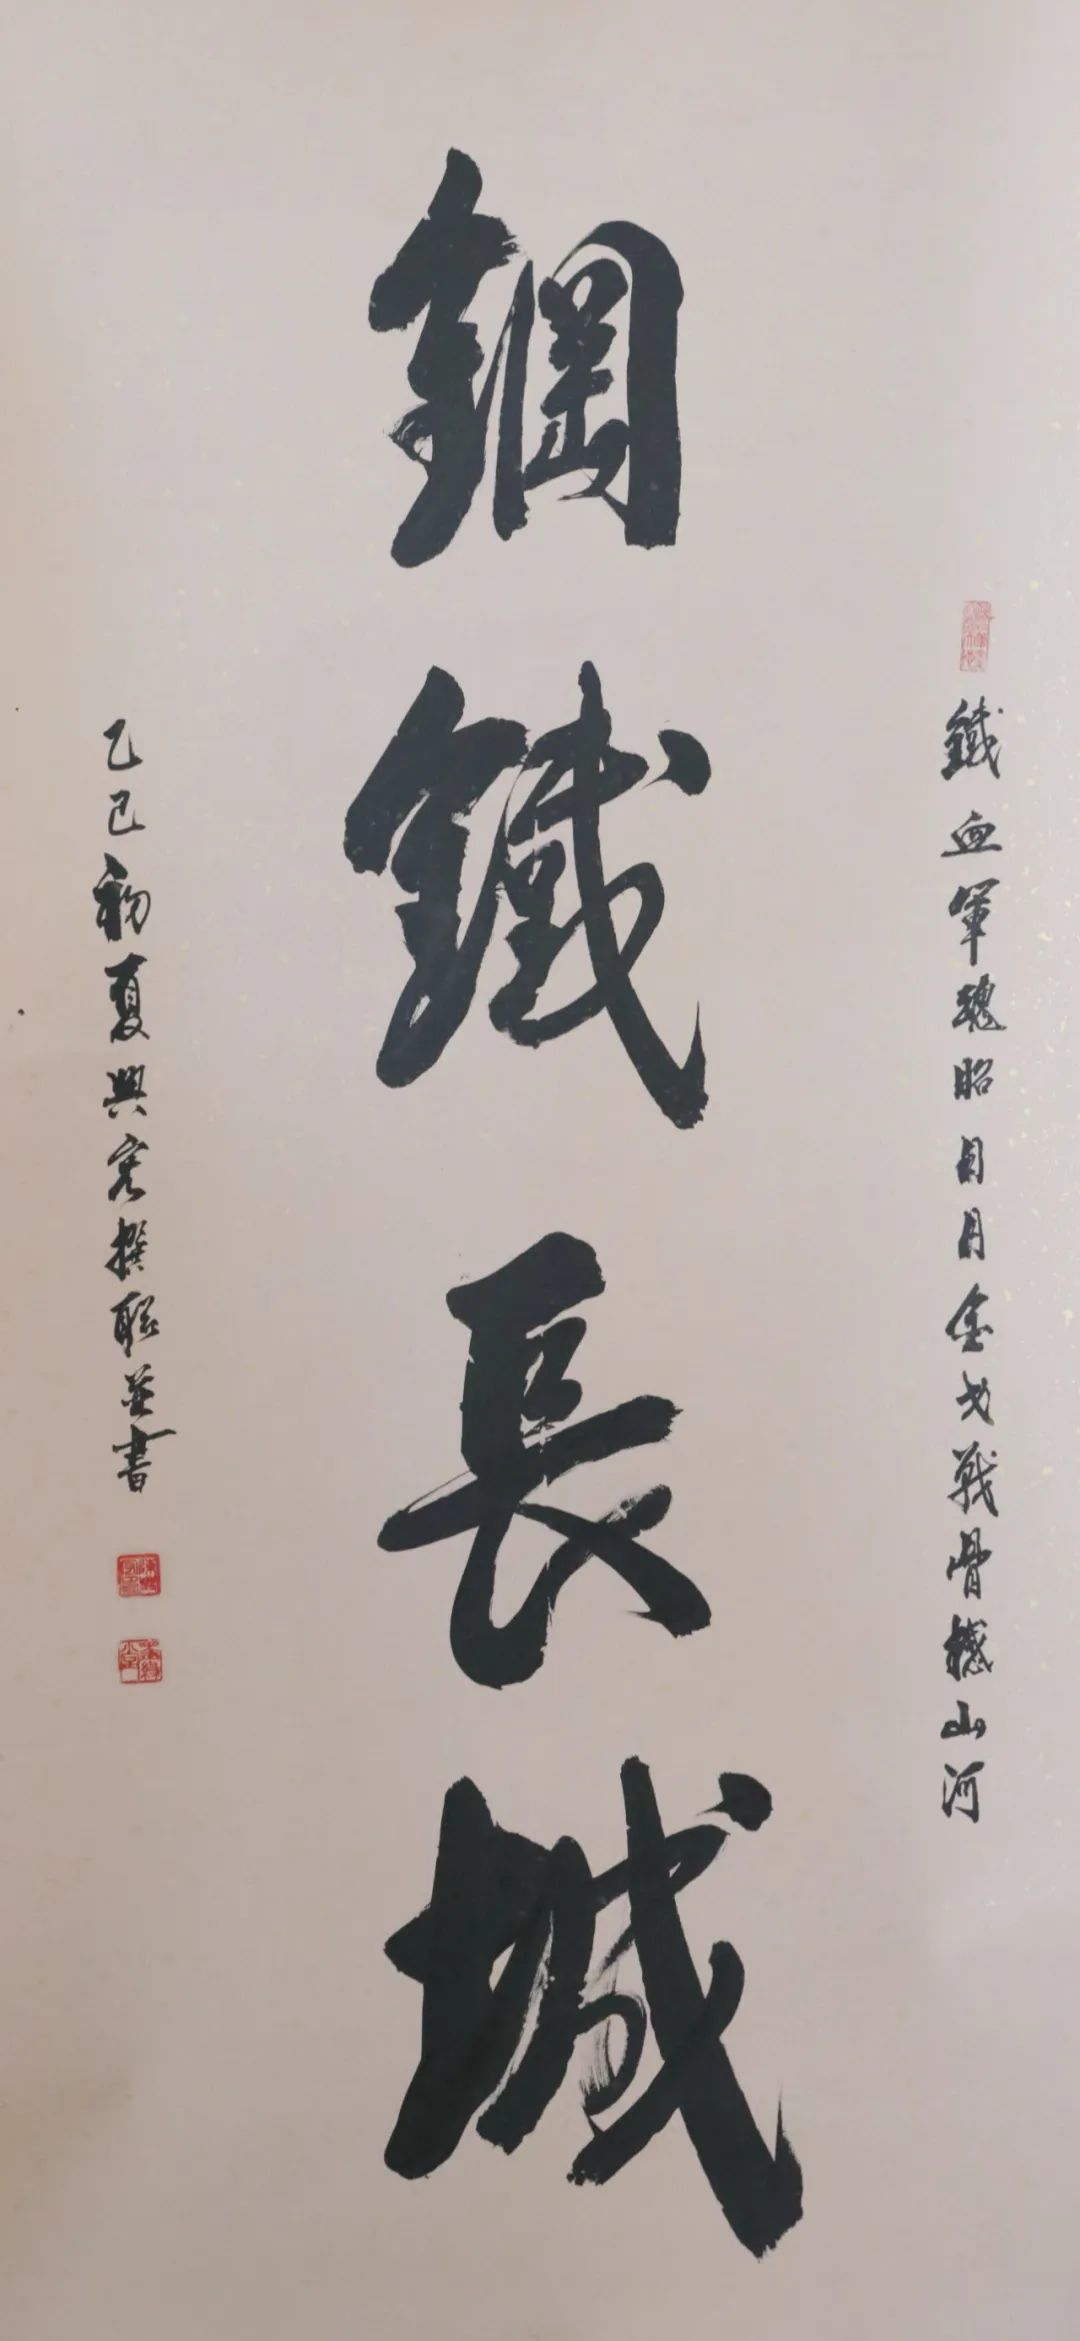 鐵血軍魂昭日月金戈戰骨撼山河
鋼鐵長城
乙巳初夏興宏撰聯並書